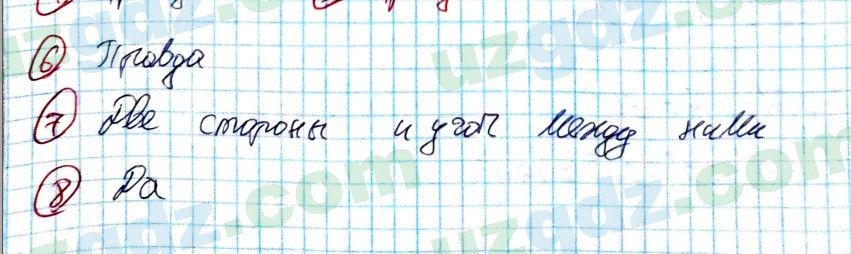 6 Правда
7 Две стороны и угол между ними
8 Да
uzgdz.com
uzgdz.com